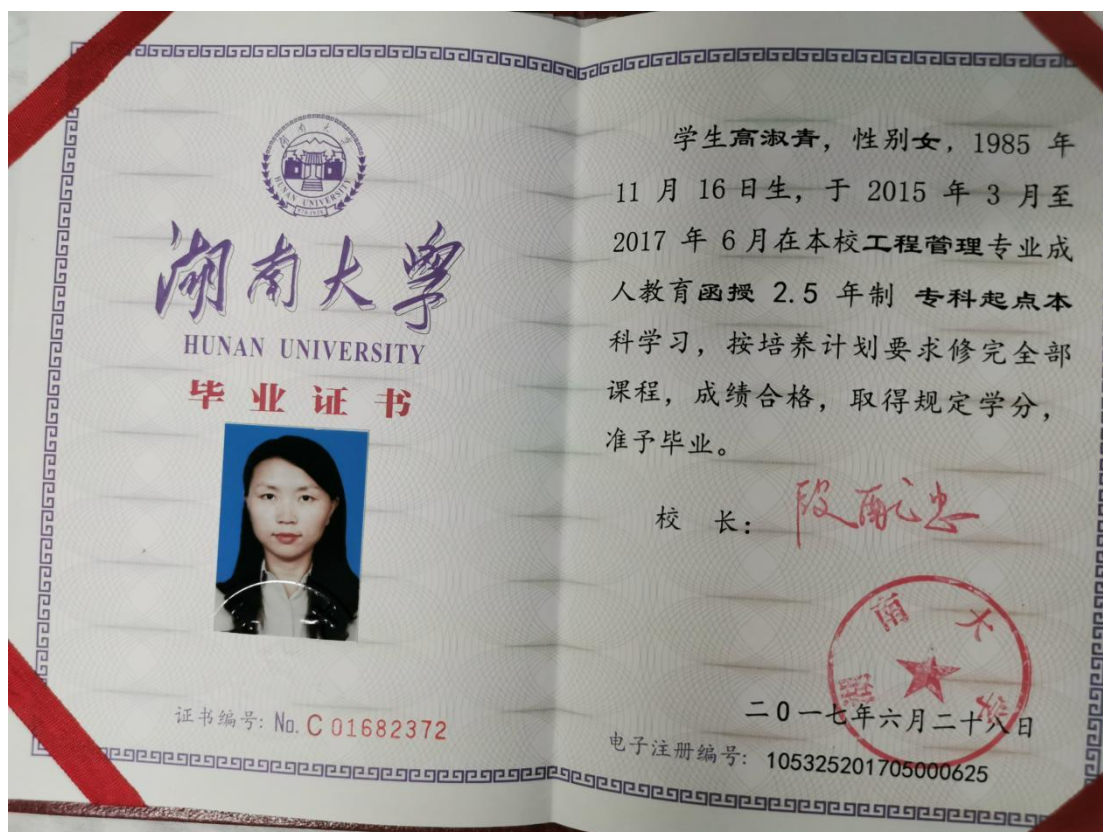 湖南大学
HUNAN UNIVERSITY
湖南大学
HUNAN UNIVERSITY
毕业证书
证书编号: No. C 01682372
学生高淑青，性别女，1985 年
11 月 16 日生，于 2015 年 3 月至
2017 年 6 月在本校工程管理专业成
人教育函授 2.5 年制 专科起点本
科学习，按培养计划要求修完全部
课程，成绩合格，取得规定学分，
准予毕业。
校 长：
湖南大学
二0一七年六月二十八日
电子注册编号: 105325201705000625